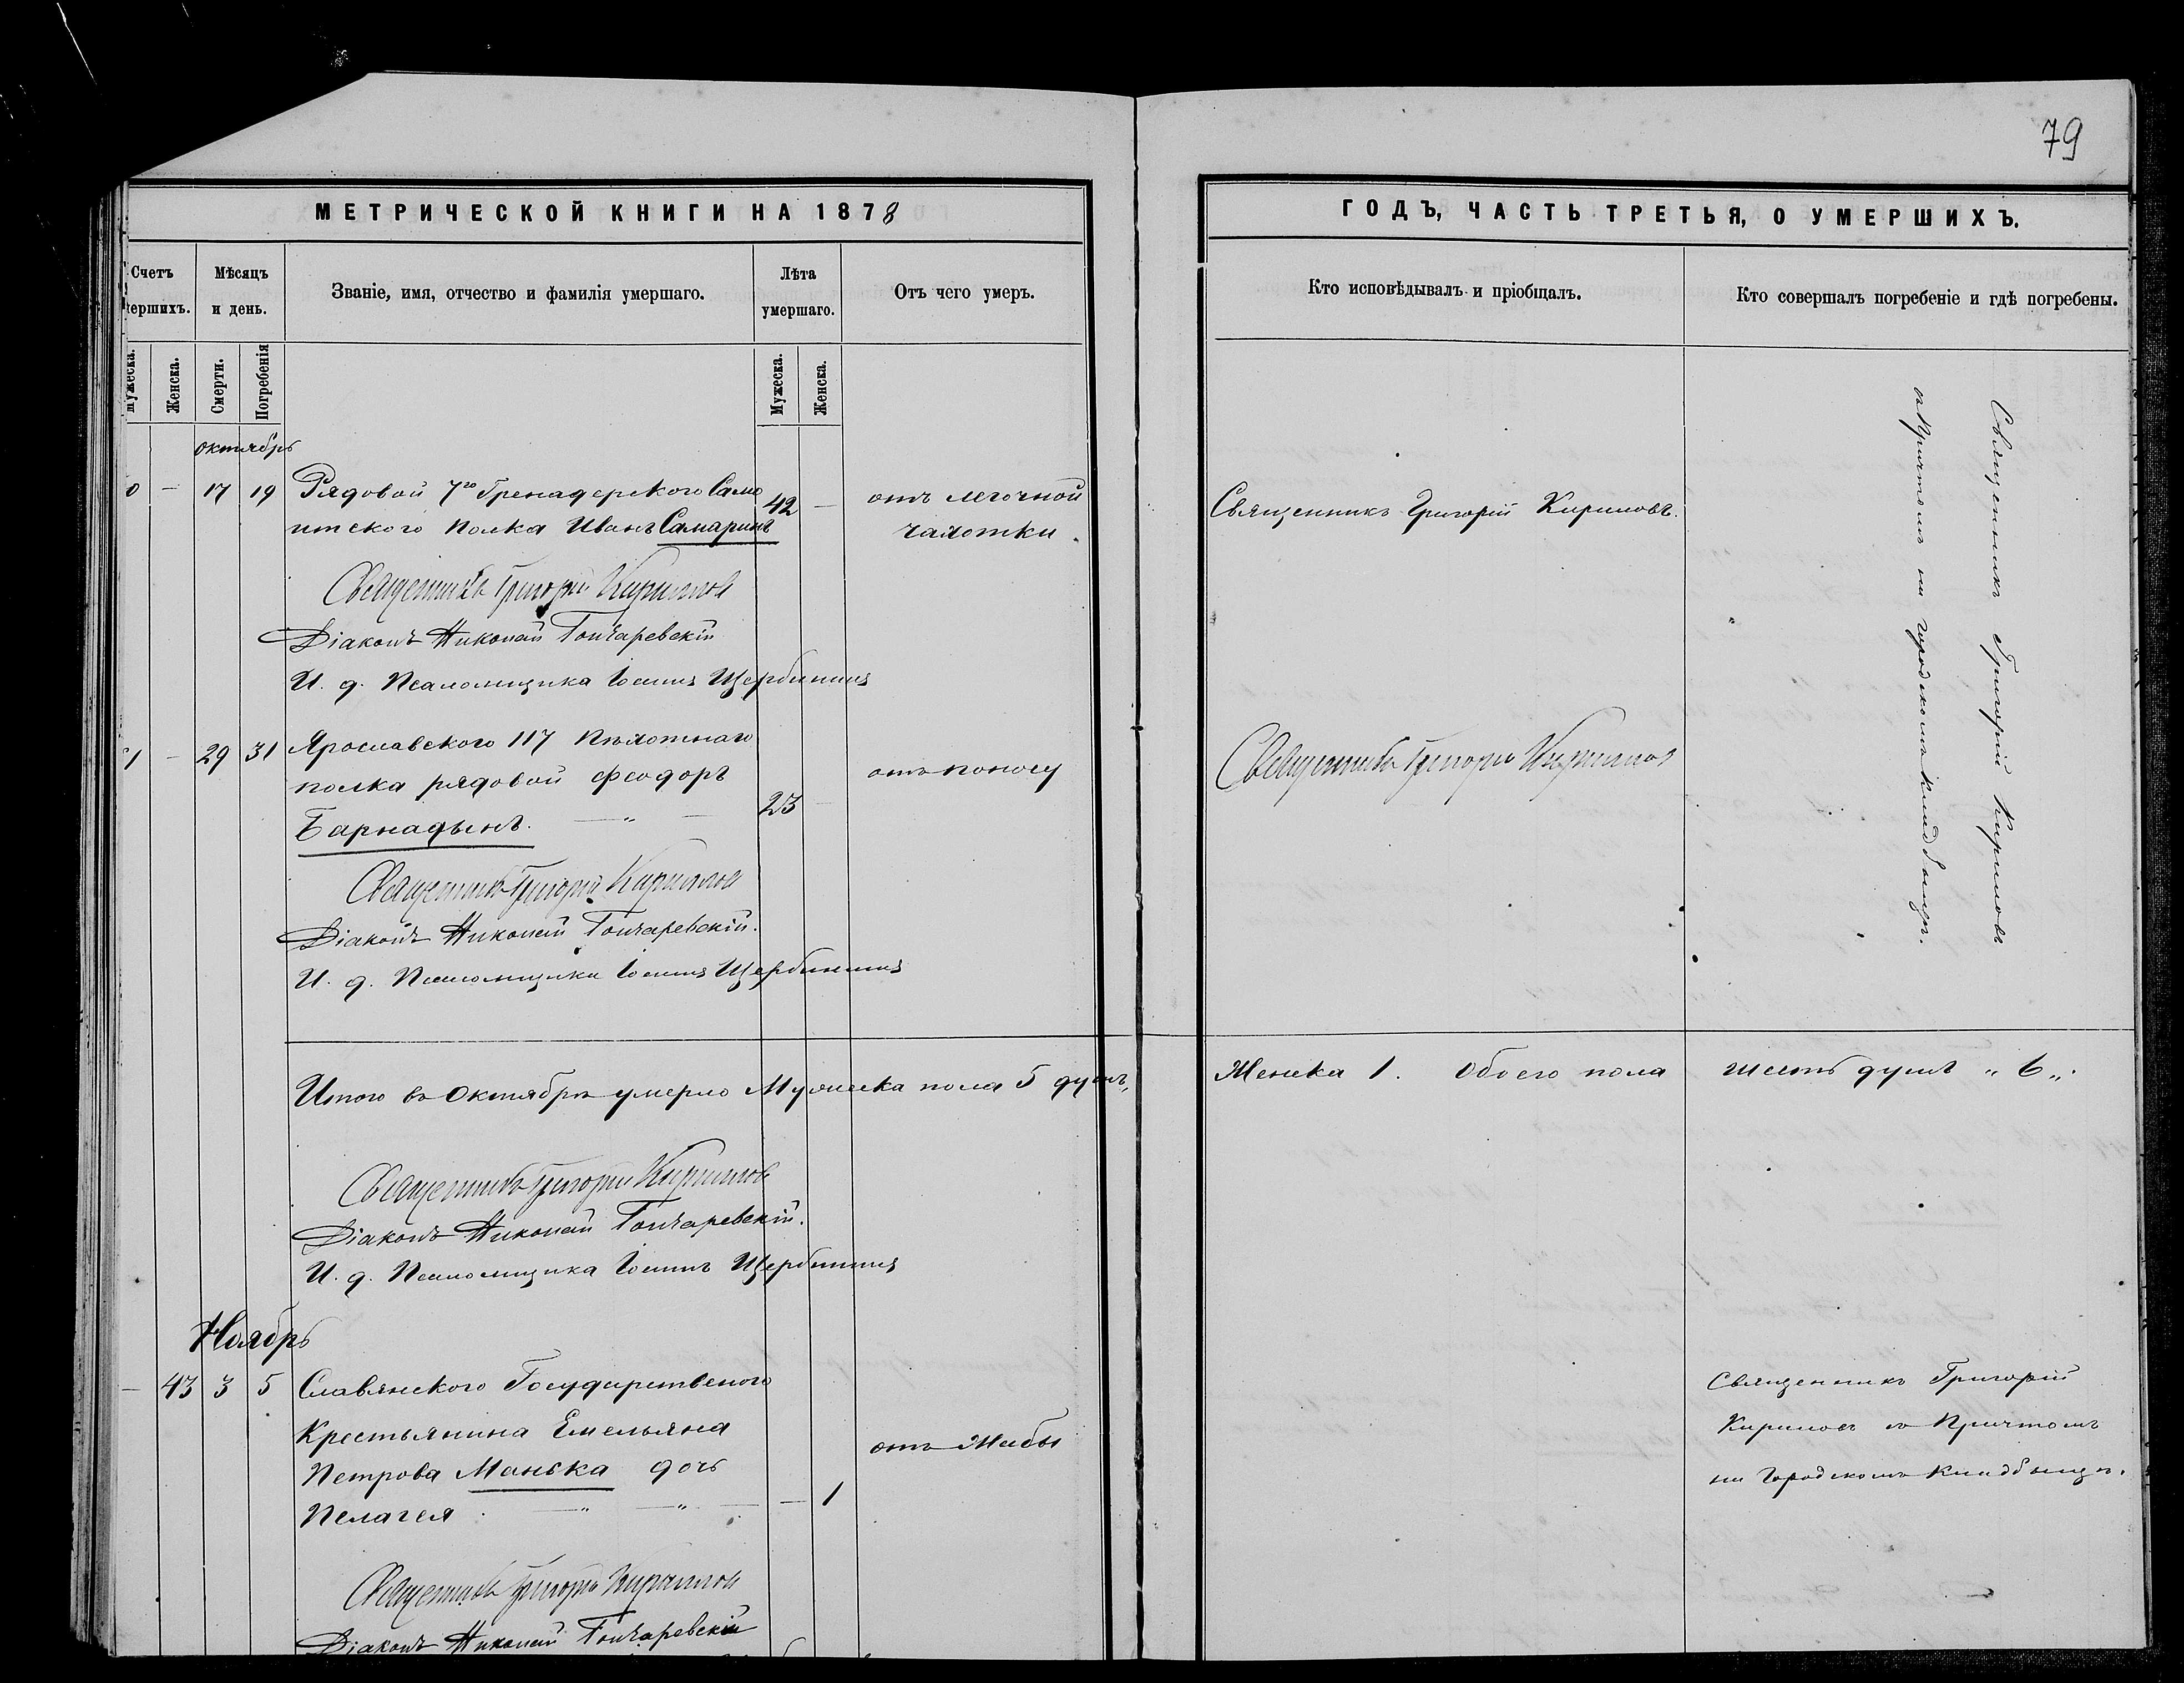 79
МЕТРИЧЕСКОЙ КНИГИ НА 1878
ГОДЪ, ЧАСТЬ ТРЕТЬЯ, О УМЕРШИХЪ.
Счетъ
умершихъ.
Мѣсяцъ
и день.
Званіе, имя, отчество и фамилія умершаго.
Лѣта
умершаго.
Отъ чего умеръ.
Кто исповѣдывалъ и пріобщалъ.
Кто совершалъ погребеніе и гдѣ погребены.
Мужеска.
Женска.
Смерти.
Погребенія
Мужеска.
Женска.
октябрь
0 — 17 19 Рядовой 7го Гренадерского Само 42 — отъ легочной
итского Полка Иванъ Самаринъ чахотки.
Священникъ Григорій Кириловъ.
Священникъ Григорій Кириловъ
съ Причтомъ на городскомъ кладбищѣ.
Священникъ Григорій Кириллов
Діаконъ Николай Гончаревскій
И. д. Псаломщика Іоаннъ Щербининъ
1 — 29 31 Ярославского 117 Пѣхотнаго
полка рядовой Феодоръ отъ поносу
Барнадынъ. — " — 23 —
Священникъ Григорій Кириллов
Священникъ Григорій Кириллов
Діаконъ Николай Гончаревскій.
И. д. Псаломщика Іоаннъ Щербининъ
Итого въ Октябрѣ умерло Мужеска пола 5 душъ, Женска 1. Обоего пола шесть душъ " 6 ".
Священникъ Григорій Кириллов
Діаконъ Николай Гончаревскій.
И. д. Псаломщика Іоаннъ Щербининъ
Ноябрь
— 43 3 5 Славянского Государственого
Крестьянина Емельяна
Петрова Манька дочь отъ Жабы
Пелагея — " — " — — 1
Священникъ Григорій
Кириловъ съ Причтомъ
на Городскомъ Кладбищѣ.
Священникъ Григорій Кириллов
Діаконъ Николай Гончаревскій